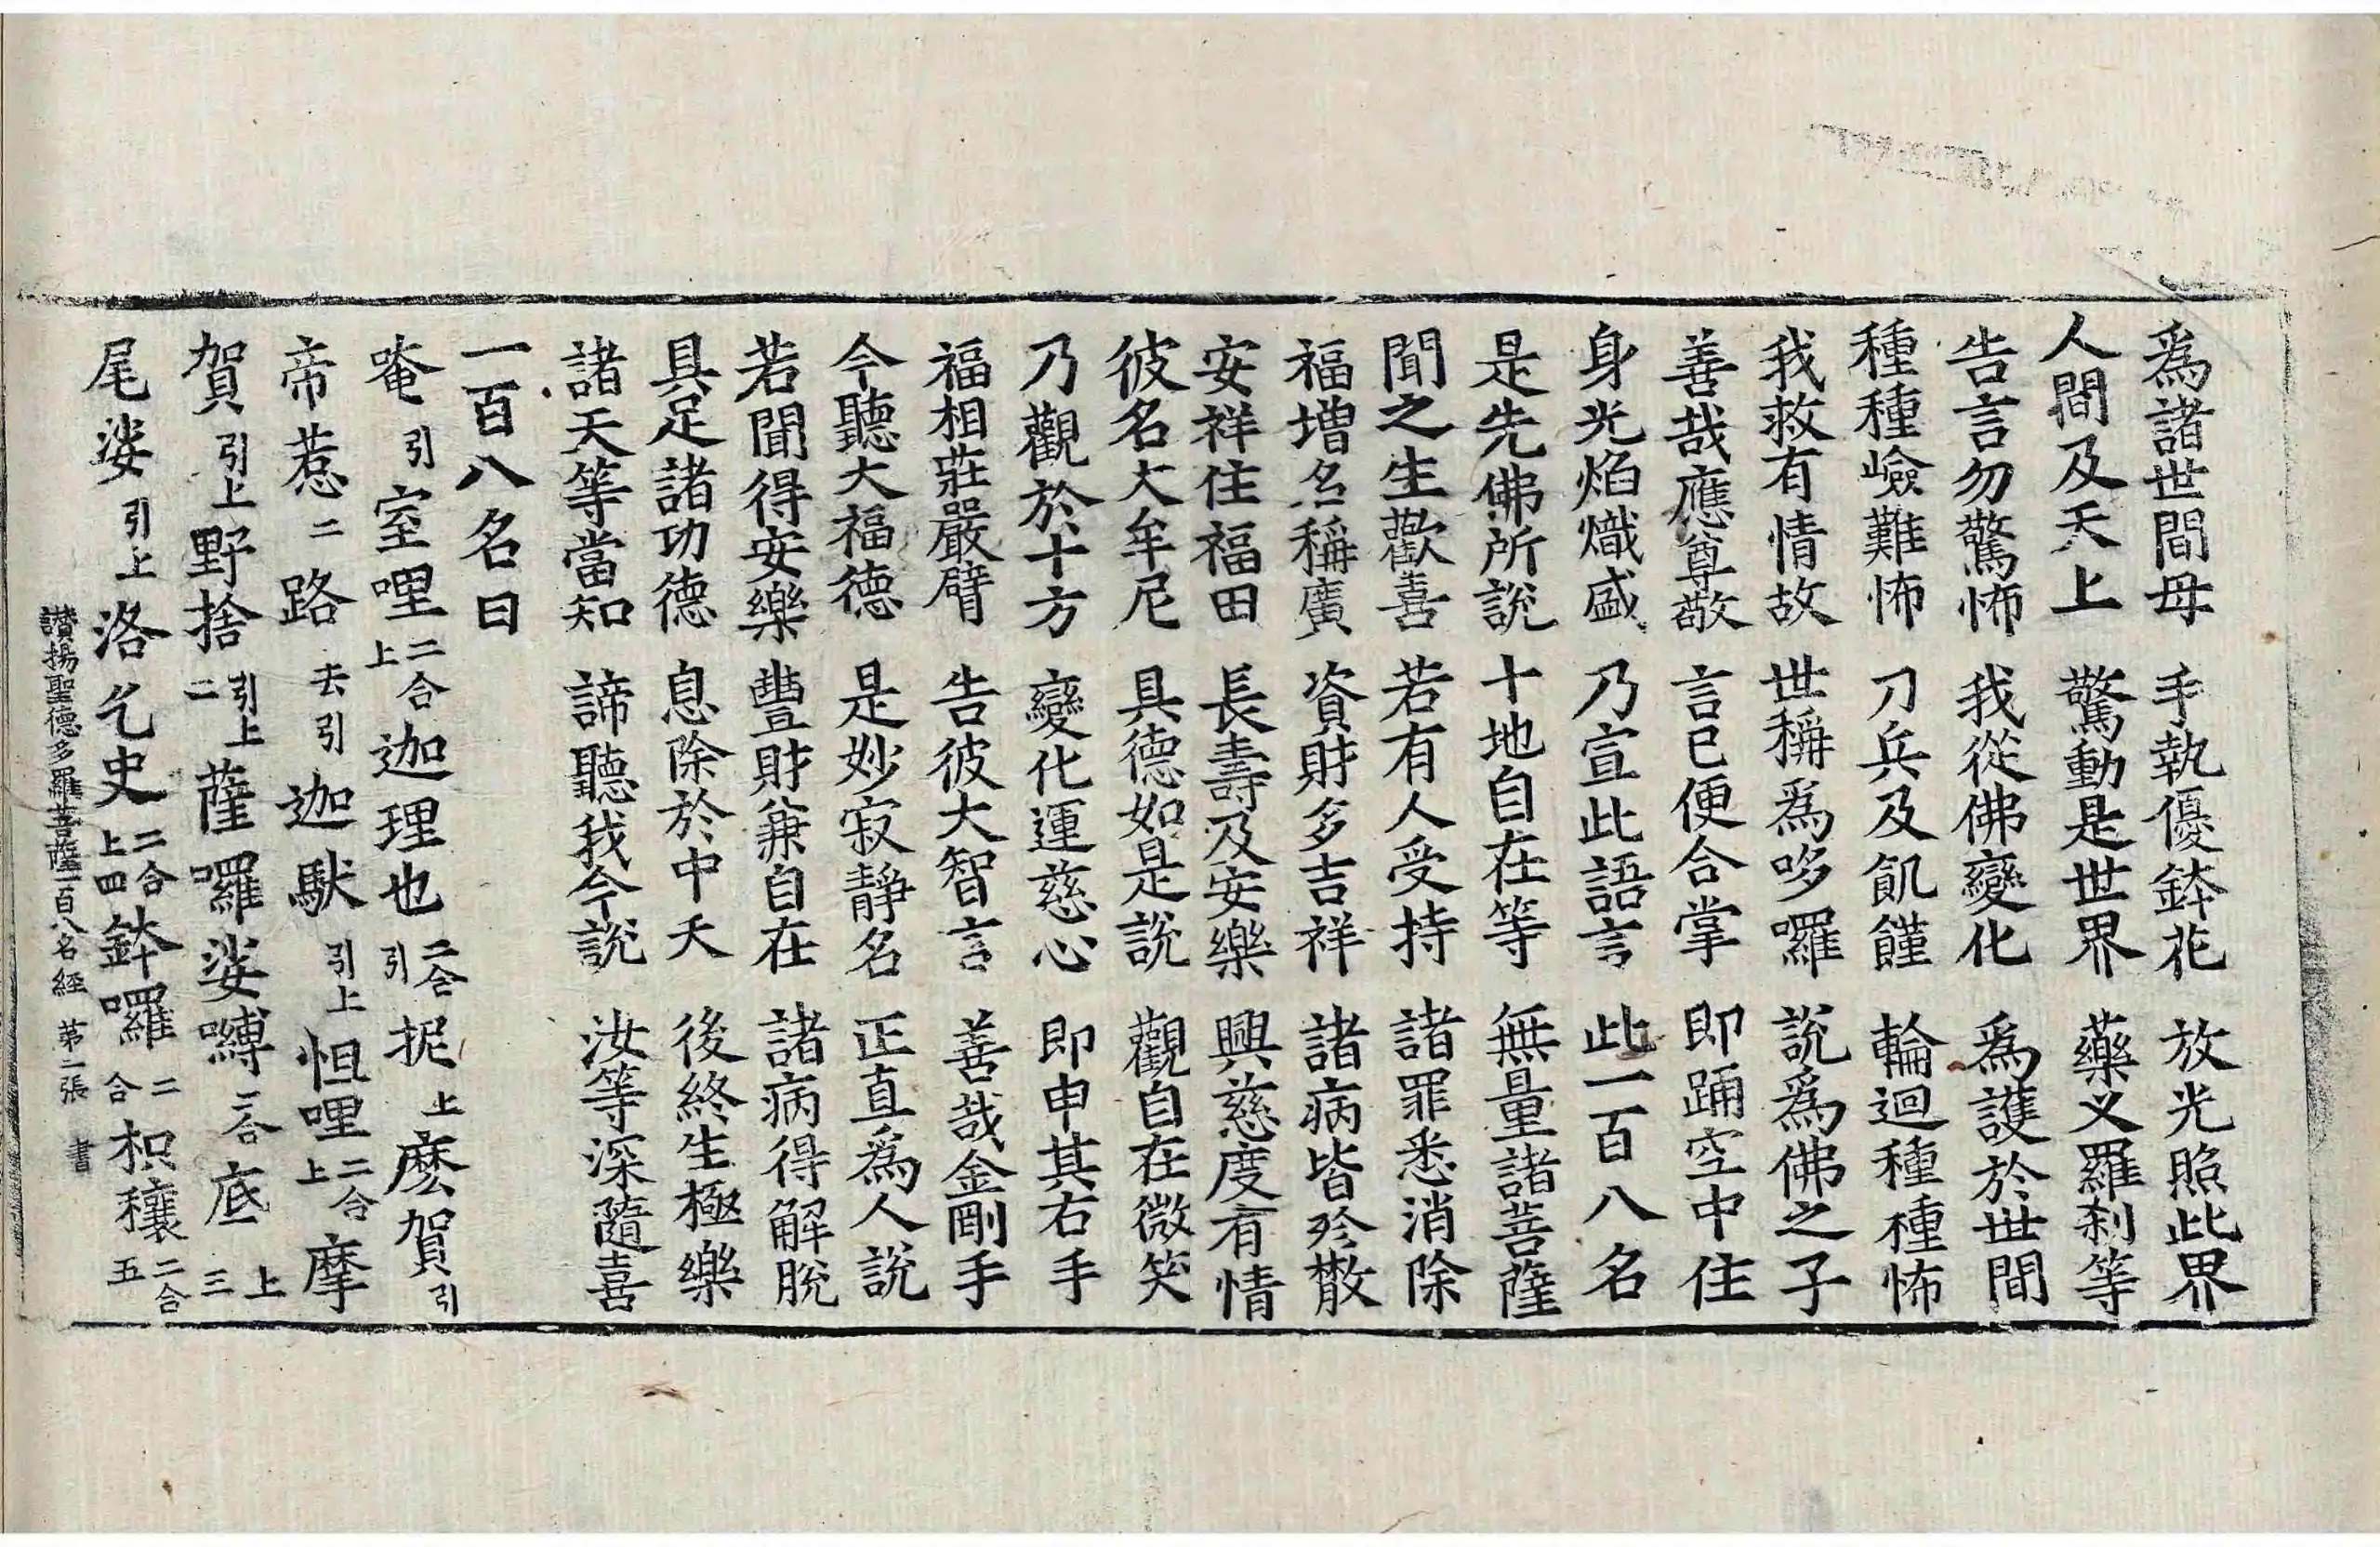 爲諸世間母 手執優鉢花 放光照此界
人間及天上 驚動是世界 藥叉羅刹等
告言勿驚怖 我從佛變化 爲護於世間
種種嶮難怖 刀兵及飢饉 輪迴種種怖
我救有情故 世稱爲哆囉 說爲佛之子
善哉應尊敬 言已便合掌 即踊空中住
身光焰熾盛 乃宣此語言 此一百八名
是先佛所說 十地自在等 無量諸菩薩
聞之生歡喜 若有人受持 諸罪悉消除
福增名稱廣 資財多吉祥 諸病皆殄散
安祥住福田 長壽及安樂 興慈度有情
彼名大牟尼 具德如是說 觀自在微笑
乃觀於十方 變化運慈心 即申其右手
福相莊嚴臂 告彼大智言 善哉金剛手
今聽大福德 是妙寂靜名 正直爲人說
若聞得安樂 豐財兼自在 諸病得解脫
具足諸功德 息除於中夭 後終生極樂
諸天等當知 諦聽我今說 汝等深隨喜
一百八名曰
唵引室哩二合上迦理也二合引抳上麽賀引
帝惹二路去引迦馱引上怛哩二合上摩
賀引上野捨引上二薩囉娑嚩二合底上三
尾娑引上洛乞史二合上四鉢囉二合枳穰二合五
讃揚聖德多羅菩薩一百八名經 第二張 書